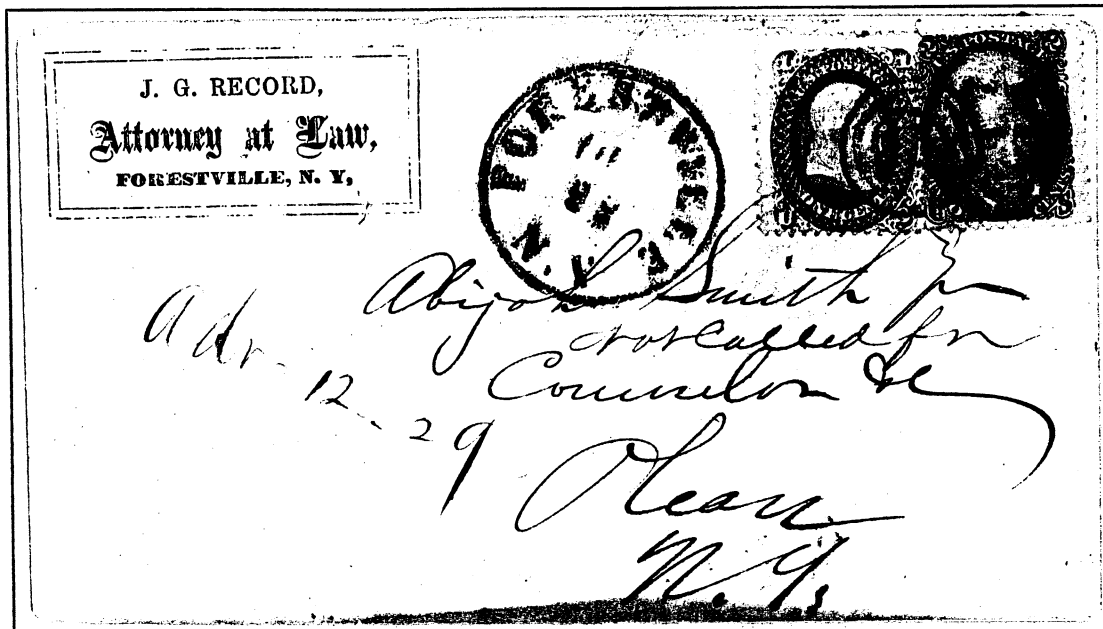 J. G. RECORD,
Attorney at Law,
FORESTVILLE, N. Y,
FORESTVILLE
N. Y.
POSTAGE
Abijah Smith Jr
not called for
Counselor &c
Adv- 12-29
Olean
N. Y.